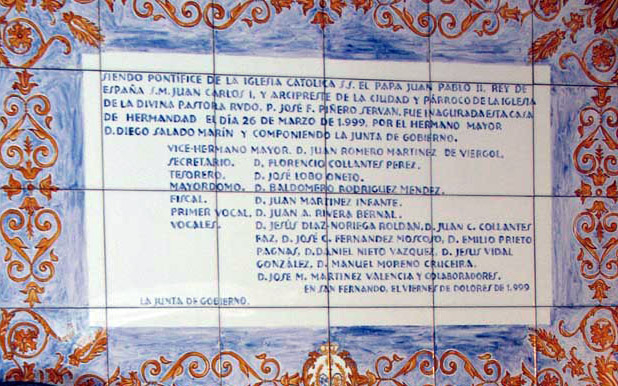 SIENDO PONTIFICE DE LA IGLESIA CATOLICA S.S. EL PAPA JUAN PABLO II, REY DE
ESPAÑA S.M. JUAN CARLOS I, Y ARCIPRESTE DE LA CIUDAD Y PÁRROCO DE LA IGLESIA
DE LA DIVINA PASTORA RVDO. P. JOSÉ F. PIÑERO SERVAN, FUE INAGURADA ESTA CASA
DE HERMANDAD EL DÍA 26 DE MARZO DE 1.999, POR EL HERMANO MAYOR
D. DIEGO SALADO MARÍN Y COMPONIENDO LA JUNTA DE GOBIERNO.
VICE-HERMANO MAYOR. D. JUAN ROMERO MARTINEZ DE VIERGOL.
SECRETARIO. D. FLORENCIO COLLANTES PEREZ.
TESORERO. D. JOSÉ LOBO ONETO.
MAYORDOMO. D. BALDOMERO RODRIGUEZ MENDEZ.
FISCAL. D. JUAN MARTINEZ INFANTE.
PRIMER VOCAL. D. JUAN A. RIVERA BERNAL.
VOCALES. D. JESÚS DIAZ-NORIEGA ROLDAN, D. JUAN C. COLLANTES
FAZ, D. JOSÉ C. FERNANDEZ MOSCOSO, D. EMILIO PRIETO
PAGNAS, D. DANIEL NIETO VAZQUEZ, D. JESUS VIDAL
GONZÁLEZ, D. MANUEL MORENO CRUCEIRA.
D. JOSE M. MARTINEZ VALENCIA Y COLABORADORES.
EN SAN FERNANDO, EL VIERNES DE DOLORES DE 1.999
LA JUNTA DE GOBIERNO.